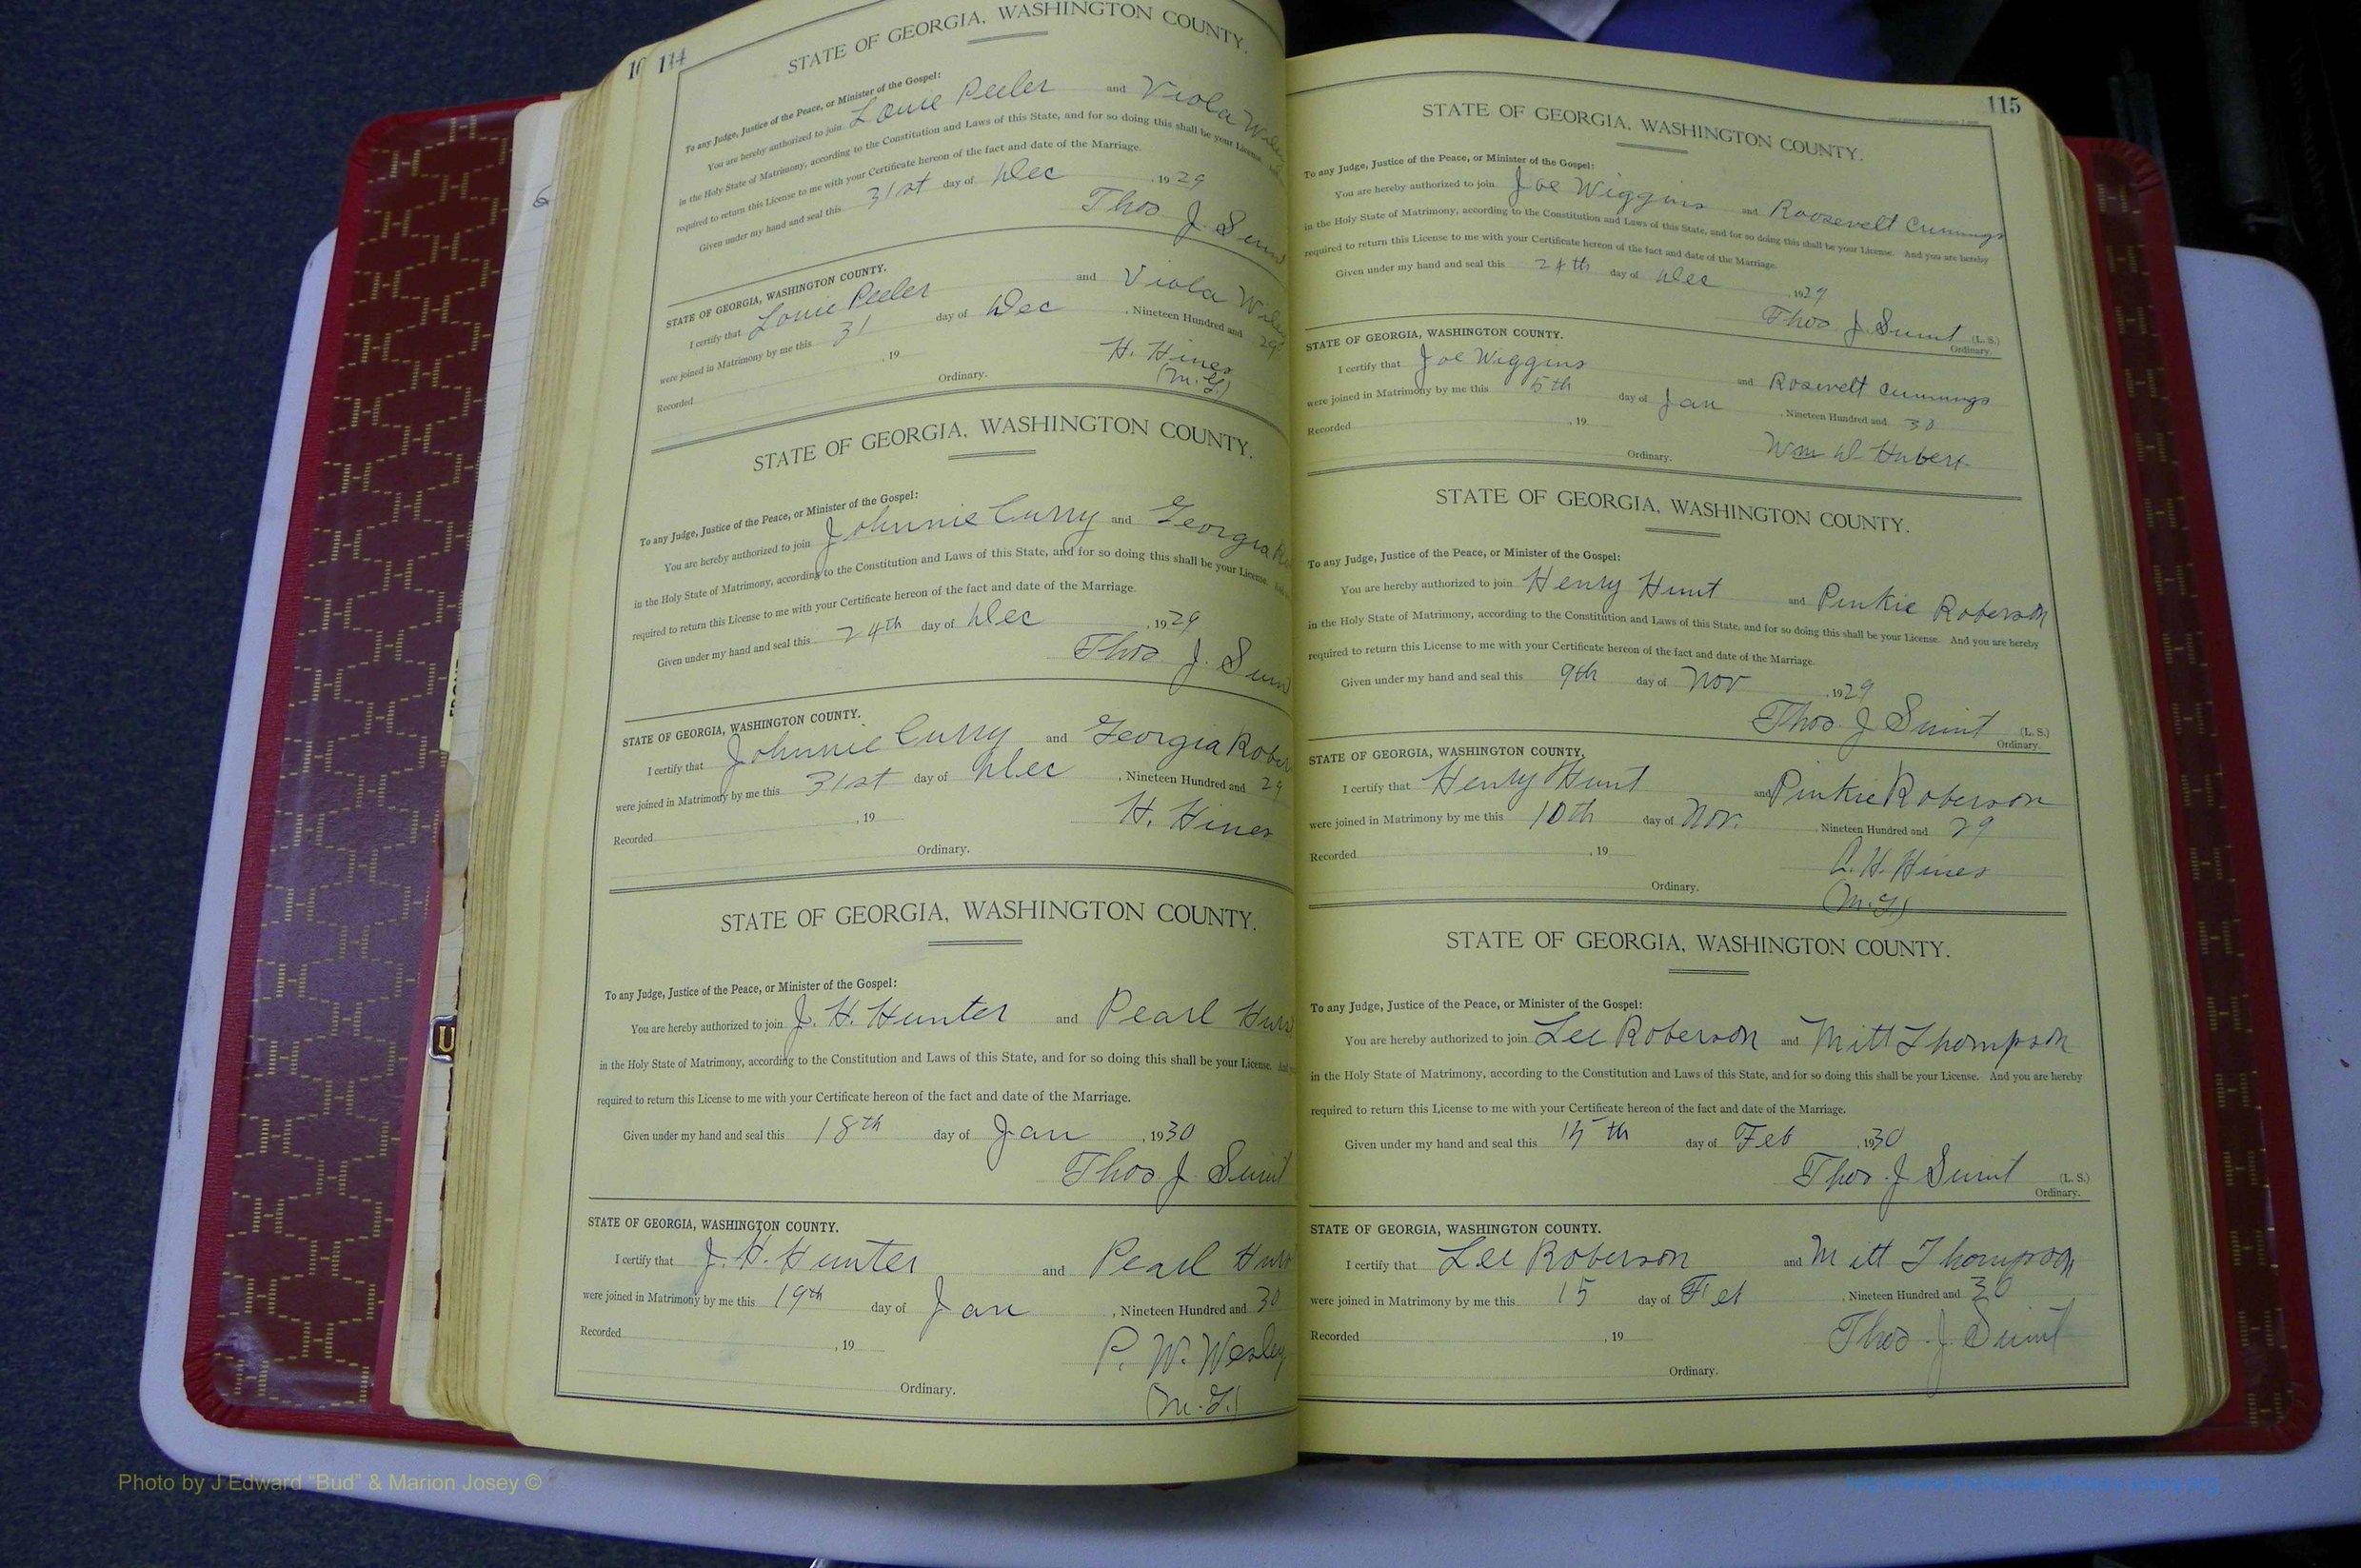 114
STATE OF GEORGIA, WASHINGTON COUNTY.
To any Judge, Justice of the Peace, or Minister of the Gospel:
You are hereby authorized to join Louie Peeler and Viola
in the Holy State of Matrimony, according to the Constitution and Laws of this State, and for so doing this shall be your License.
required to return this License to me with your Certificate hereon of the fact and date of the Marriage.
Given under my hand and seal this 31st day of Dec , 1929
Thos J.
STATE OF GEORGIA, WASHINGTON COUNTY.
I certify that Louie Peeler and Viola
were joined in Matrimony by me this 31 day of Dec , Nineteen Hundred and 29
Recorded , 19 H. Hines
Ordinary. (M.G.)
STATE OF GEORGIA, WASHINGTON COUNTY.
To any Judge, Justice of the Peace, or Minister of the Gospel:
You are hereby authorized to join Johnnie Curry and Georgia
in the Holy State of Matrimony, according to the Constitution and Laws of this State, and for so doing this shall be your License.
required to return this License to me with your Certificate hereon of the fact and date of the Marriage.
Given under my hand and seal this 24th day of Dec , 1929
Thos J.
STATE OF GEORGIA, WASHINGTON COUNTY.
I certify that Johnnie Curry and Georgia
were joined in Matrimony by me this 31st day of Dec , Nineteen Hundred and 29
Recorded , 19 H. Hines
Ordinary.
STATE OF GEORGIA, WASHINGTON COUNTY.
To any Judge, Justice of the Peace, or Minister of the Gospel:
You are hereby authorized to join J. H. Hunter and Pearl
in the Holy State of Matrimony, according to the Constitution and Laws of this State, and for so doing this shall be your License.
required to return this License to me with your Certificate hereon of the fact and date of the Marriage.
Given under my hand and seal this 18th day of Jan , 1930
Thos J.
STATE OF GEORGIA, WASHINGTON COUNTY.
I certify that J. H. Hunter and Pearl
were joined in Matrimony by me this 19th day of Jan , Nineteen Hundred and 30
Recorded , 19 P. W. Wesley
Ordinary. (M.G.)
115
STATE OF GEORGIA, WASHINGTON COUNTY.
To any Judge, Justice of the Peace, or Minister of the Gospel:
You are hereby authorized to join Joe Wiggins and Roosevelt Cummings
in the Holy State of Matrimony, according to the Constitution and Laws of this State, and for so doing this shall be your License. And you are hereby
required to return this License to me with your Certificate hereon of the fact and date of the Marriage.
Given under my hand and seal this 24th day of Dec , 1929
Thos J. (L. S.)
Ordinary.
STATE OF GEORGIA, WASHINGTON COUNTY.
I certify that Joe Wiggins and Rosevelt Cummings
were joined in Matrimony by me this 5th day of Jan , Nineteen Hundred and 30
Recorded , 19 Wm D. Hubert
Ordinary.
STATE OF GEORGIA, WASHINGTON COUNTY.
To any Judge, Justice of the Peace, or Minister of the Gospel:
You are hereby authorized to join Henry Hunt and Pinkie Roberson
in the Holy State of Matrimony, according to the Constitution and Laws of this State, and for so doing this shall be your License. And you are hereby
required to return this License to me with your Certificate hereon of the fact and date of the Marriage.
Given under my hand and seal this 9th day of Nov , 1929
Thos J (L. S.)
Ordinary.
STATE OF GEORGIA, WASHINGTON COUNTY.
I certify that Henry Hunt and Pinkie Roberson
were joined in Matrimony by me this 10th day of Nov. , Nineteen Hundred and 29
Recorded , 19 A. H. Hines
Ordinary. (M.G)
STATE OF GEORGIA, WASHINGTON COUNTY.
To any Judge, Justice of the Peace, or Minister of the Gospel:
You are hereby authorized to join Lee Roberson and Mitt Thompson
in the Holy State of Matrimony, according to the Constitution and Laws of this State, and for so doing this shall be your License. And you are hereby
required to return this License to me with your Certificate hereon of the fact and date of the Marriage.
Given under my hand and seal this 15th day of Feb , 1930
Thos. J (L. S.)
Ordinary.
STATE OF GEORGIA, WASHINGTON COUNTY.
I certify that Lee Roberson and Mitt Thompson
were joined in Matrimony by me this 15 day of Feb , Nineteen Hundred and 30
Recorded , 19 Thos. J.
Ordinary.
Photo by J Edward “Bud” & Marion Josey ©